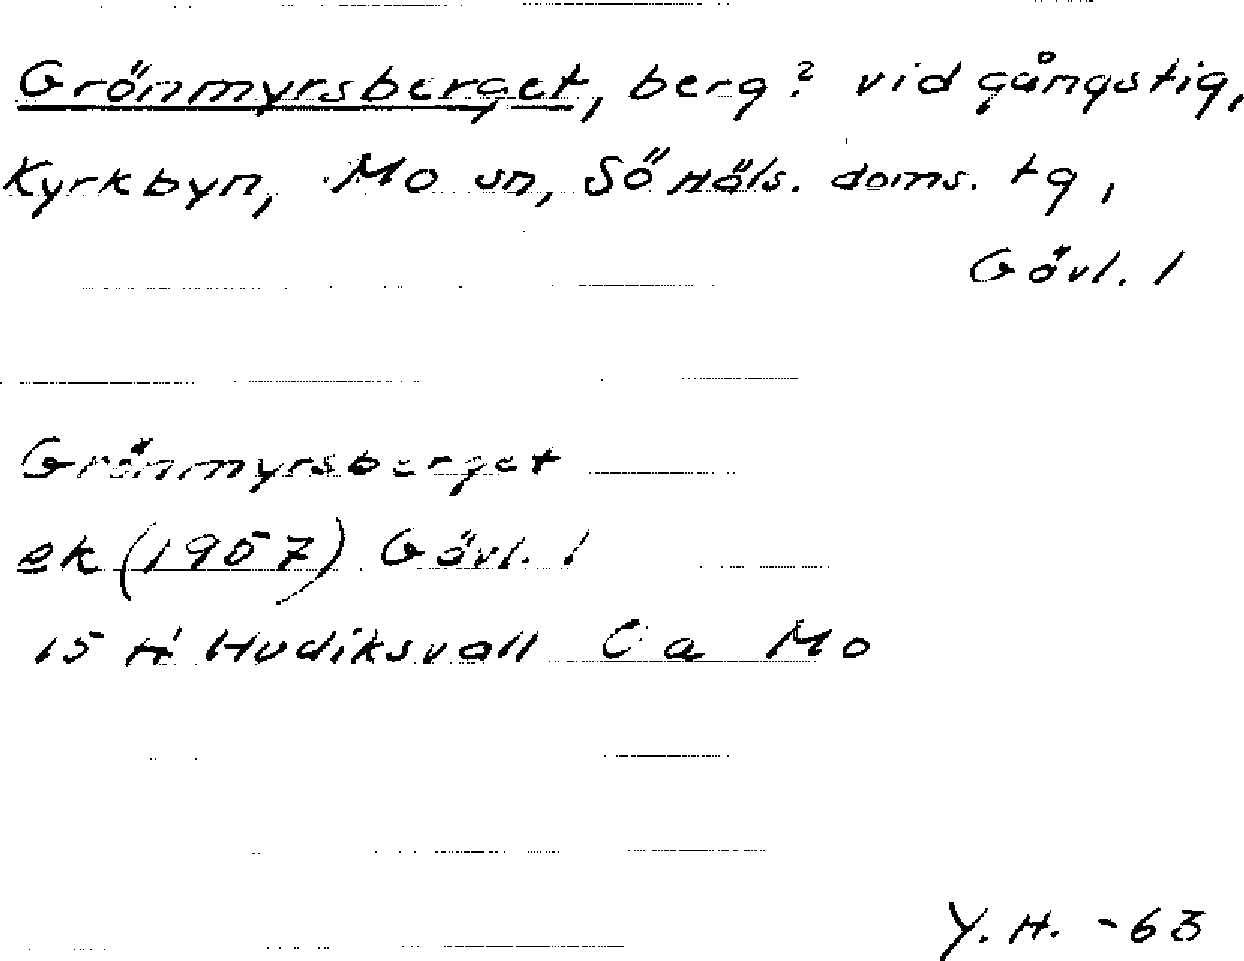 Grönmyrsberget, berg? vid gångstig,
Kyrkbyn, Mo sn, Sö Häls. doms. tg,
Gävl. l
Grönmyrsberget
ek (1957) Gävl. l
15 H Hudiksvall Ca Mo
Y. H. -63